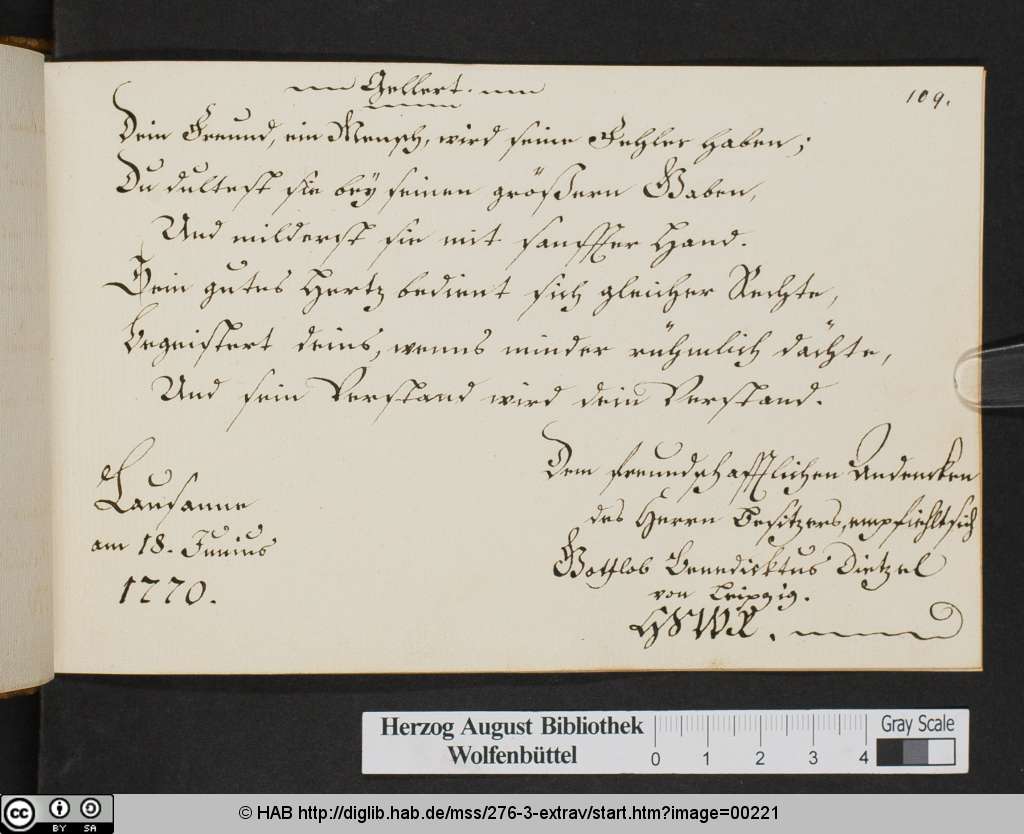 Gellert.
109.
Dein Freund, ein Mensch, wird seine Fehler haben;
Du dultest sie bey seinen größern Gaben,
Und milderst sie mit sanffter Hand.
Sein gutes Hertz bedient sich gleicher Rechte,
Begeistert deins, wenns minder rühmlich dächte,
Und sein Verstand wird dein Verstand.
Lausanne
am 18. Junius
1770.
Dem freundschafftlichen Andencken
des Herrn Besitzers, empfiehlt sich
Gottlob Benedicktus Dietzel
von Leipzig.
Herzog August Bibliothek
Wolfenbüttel
0 1 2 3 4
Gray Scale
cc BY SA
© HAB http://diglib.hab.de/mss/276-3-extrav/start.htm?image=00221